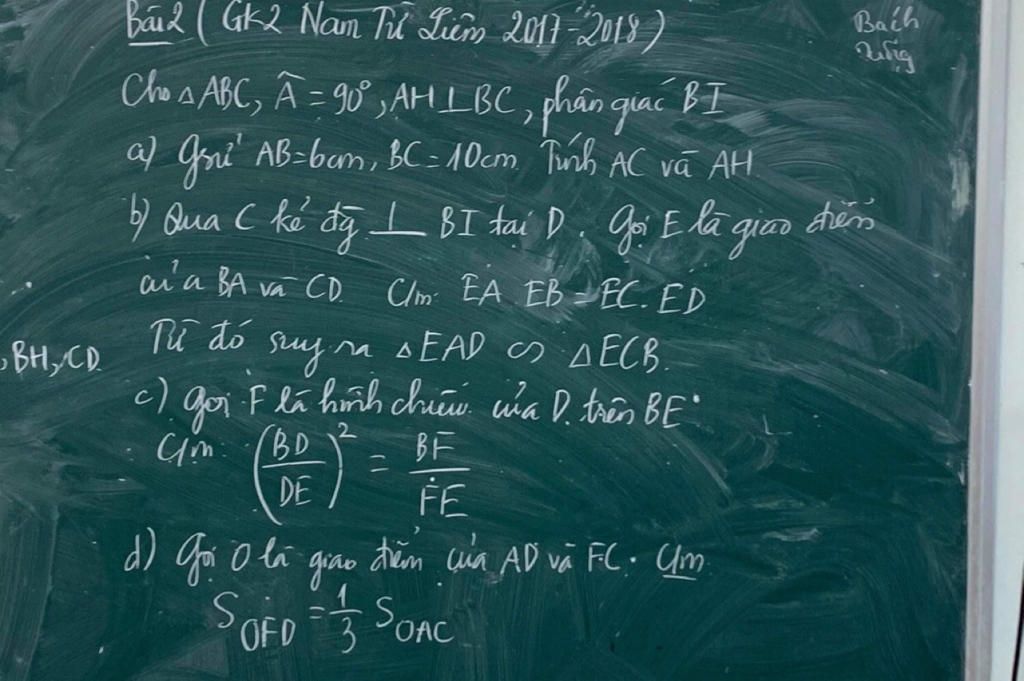 Bài 2 (GK2 Nam Từ Liêm 2017-2018)
Bách
Dũng
Cho △ABC, Â = 90°, AH⊥BC, phân giác BI
a) Gsử AB=6cm, BC=10cm. Tính AC và AH.
b) Qua C kẻ đg ⊥ BI tại D. Gọi E là giao điểm
của BA và CD. C/m: EA.EB = EC.ED
Từ đó suy ra △EAD ∽ △ECB.
, BH, CD.
c) Gọi F là hình chiếu của D trên BE.
C/m (BD/DE)² = BF/FE
d) Gọi O là giao điểm của AD và FC. C/m
S_OFD = 1/3 S_OAC